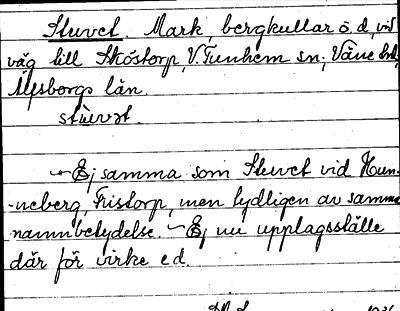 Stuvet. Mark, bergkullar o. d., vid
väg till Sköstorp, V. Tunhem sn, Väne hd,
Älvsborgs län.
stùvət.
Ej samma som Stuvet vid Hun-
-neberg, Fristorp, men tydligen av samma
namnbetydelse. Ej nu upplagsställe
där för virke e d.